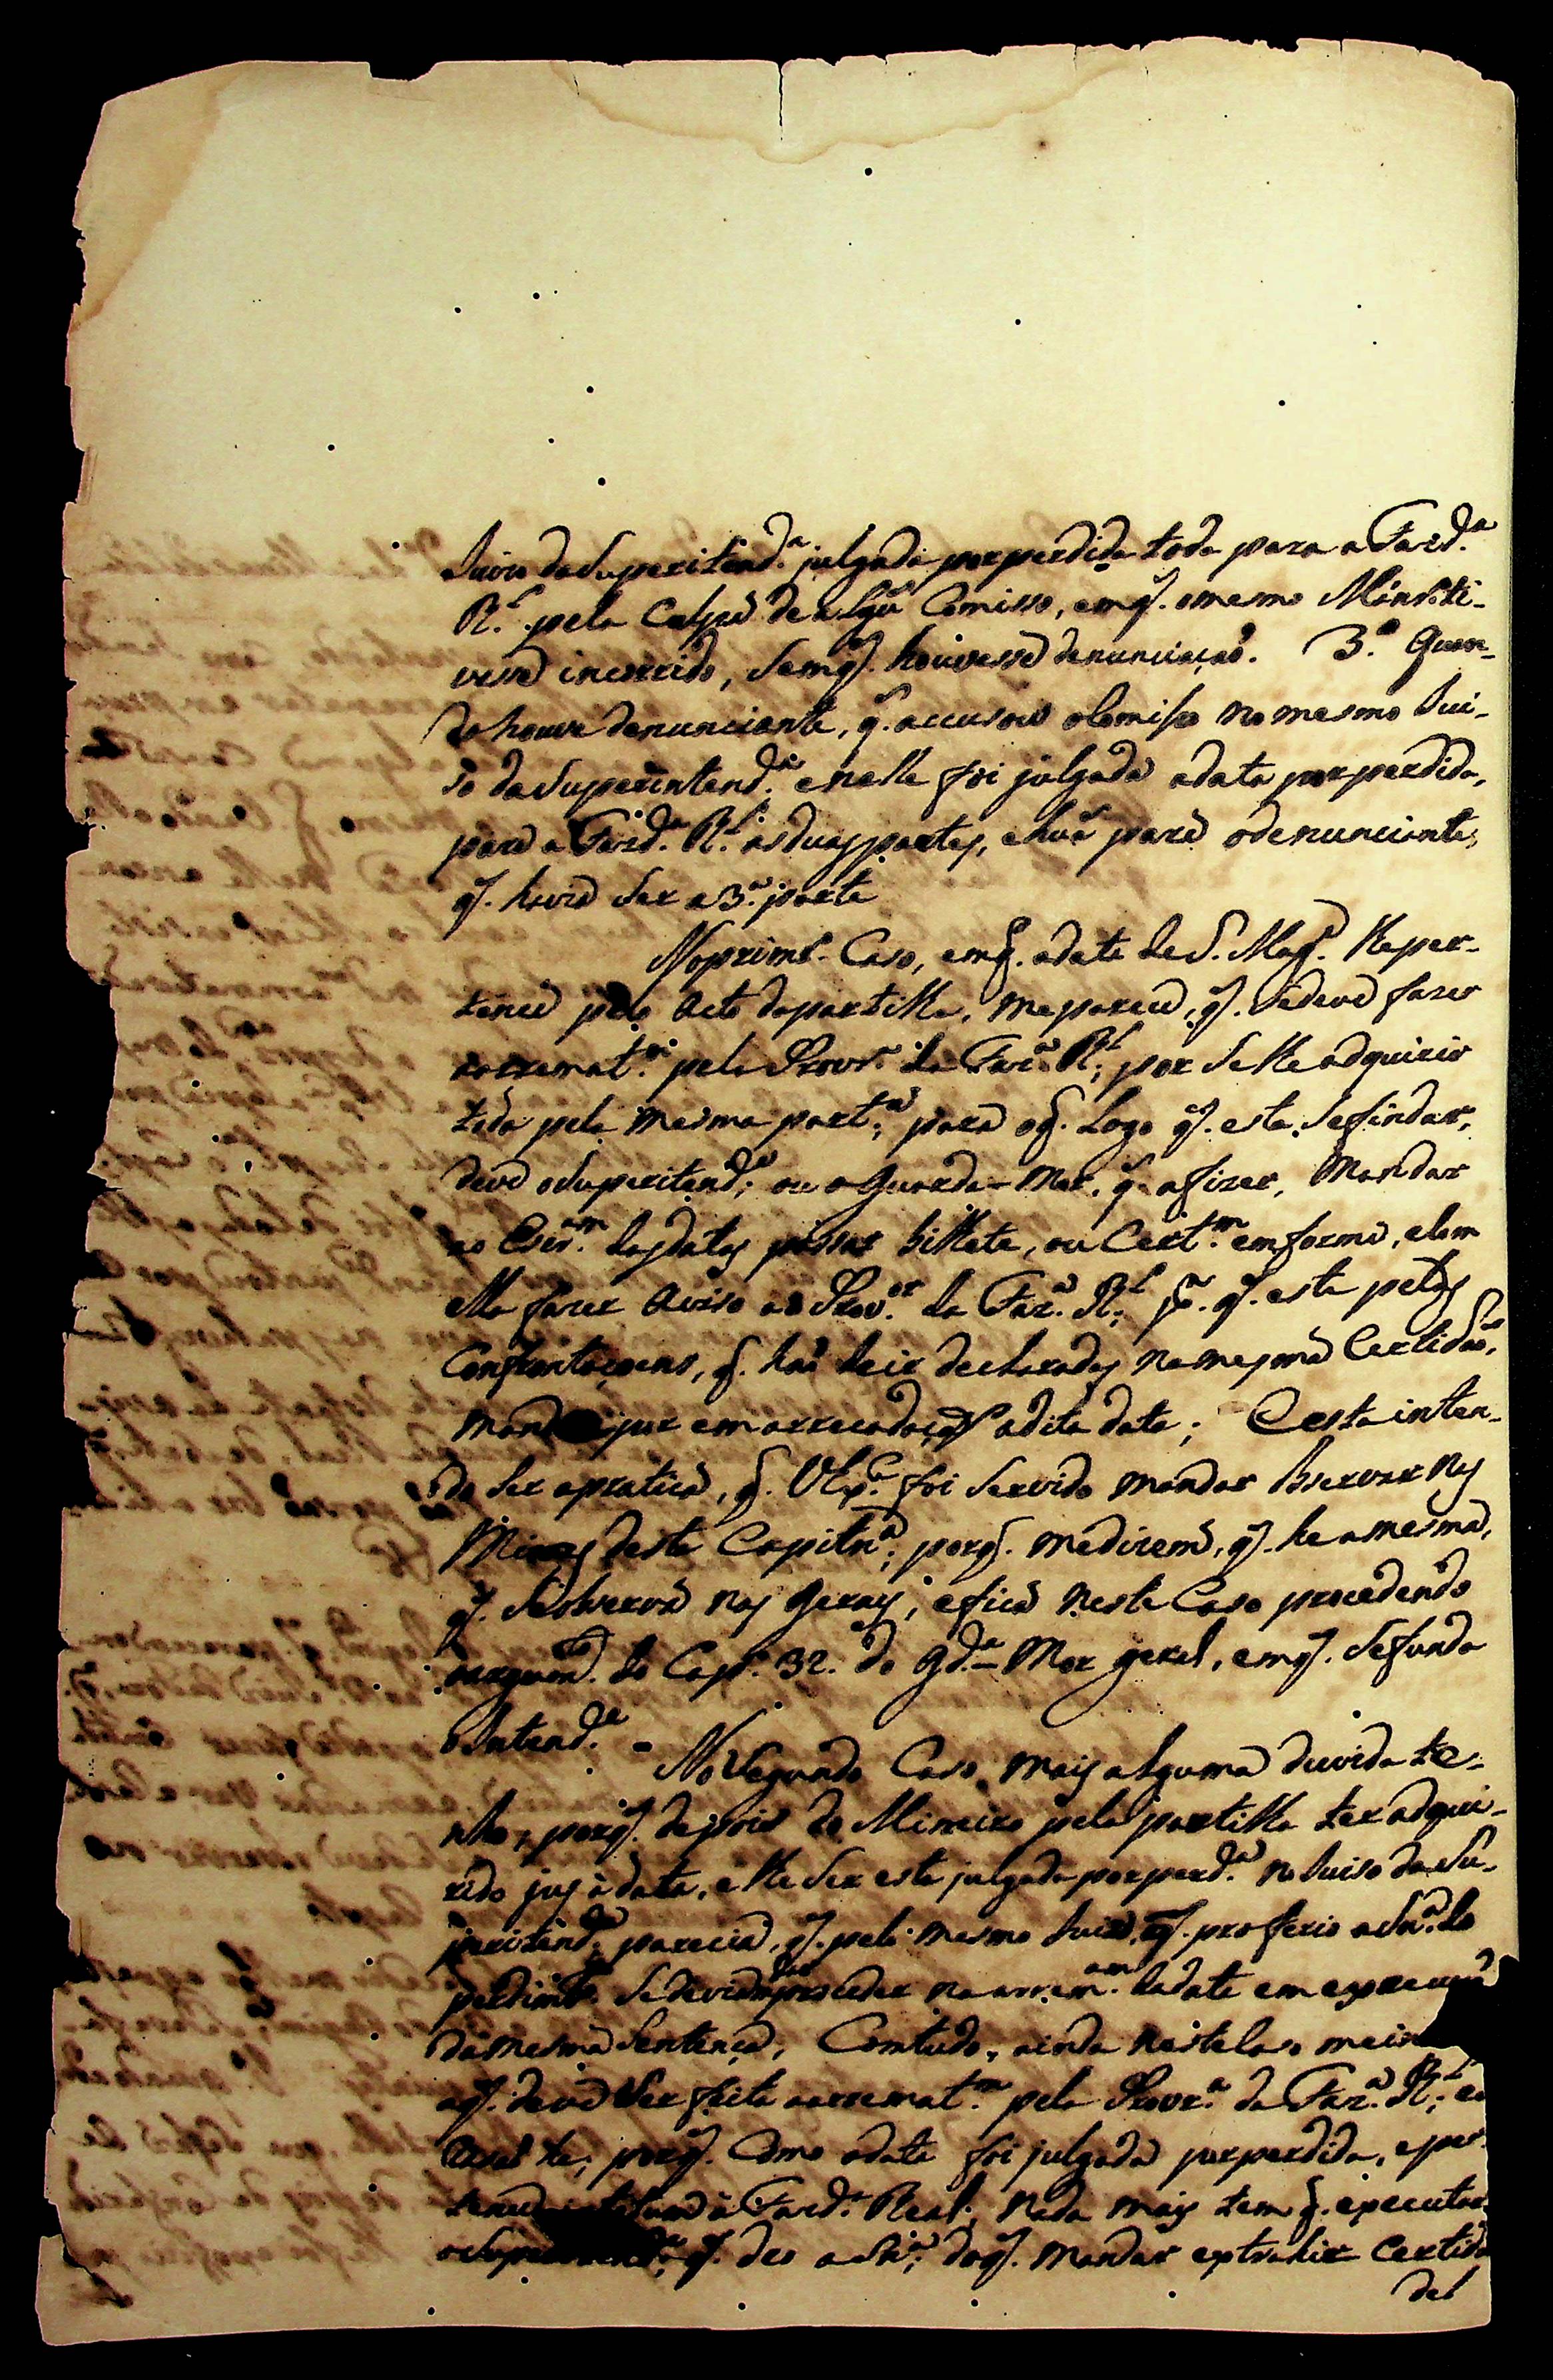 Juizo da Superitend.ª julgada por perdida toda para a Fazd.ª
R.l pela Culpa de algũ Comisso, em q. o mesmo Minr.º ti-
vesse incorrido, sem q. houvesse denunciação. 3.º Quan-
do houve denunciante, q. accusou o Comisso no mesmo Jui-
so da Superintend.ª e nelle foi julgada a data por perdida,
para a Fazd.ª R.l as duas partes, e huã para o denunciante,
q. havia ser a 3.ª parte
No primr.º Caso, em q. a data de S. Mag.e lhe per-
tence pelo acto da partilha, me parece, q. se deve fazer
a arremat.m pela Provr.ª da Faz.ª R.l, por se lhe adquirir
toda pela mesma part.ª, para o q. logo q. esta se findar,
deve o Superitend.e ou o Guarda-Mor, q. a fizer, Mandar
ao Escr.am das datas passar bilhete, ou Cert.m em forma, e com
ella fazer aviso ao Prov.or da Faz.ª R.l, p.ª q. este pelas
Confrontaçoens, q. haõ de ir declaradas na mesma Certidaõ,
mande por em arrecadação a dita data; E esta inten-
do ser a pratica, q. V Ex.ª foi servido mandar observar nas
Minas desta Capitn.ª, porq. me dizem, q. he a mesma,
q. se observa nas Geraes; e fica neste Caso procedendo
o do Cap.º 32. do Gd.ª-Mor geral, em q. se funda
o Intend.e - No Segundo Caso, mais alguma duvida te-
nho, porq. depois do Mineiro pela partilha ter adqui-
rido jus à data, e lhe ser esta julgada por perd.ª no Juiso da Su-
peritend.ª parecia, q. pelo mesmo Juizo, q. proferio a Sn.ª do
perdimt.º se devia proceder na arrem.am da data em
da mesma Sentença, Comtudo, ainda neste Caso
q. deve ser feita a arremat.m pela Provr.ª da Faz.ª R.l,
porq. Como a data foi julgada por perdida, e per-
à Fazd.ª Real, nada mais tem q. executar
o Superintend.e, q. deo a Sn.ª, do q. mandar extrahir Certida
del